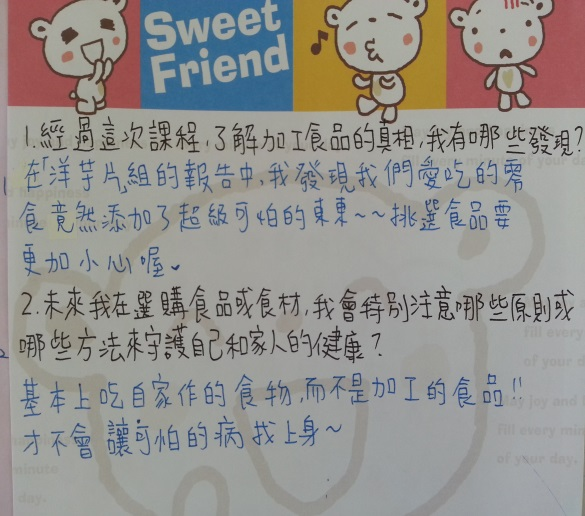 Sweet
Friend
1.經過這次課程,了解加工食品的真相,我有哪些發現?
在「洋芋片」組的報告中,我發現我們愛吃的零
食竟然添加了超級可怕的東東~~挑選食品要
更加小心喔。
2.未來我在選購食品或食材,我會特別注意哪些原則或
哪些方法來守護自己和家人的健康?
基本上吃自家作的食物,而不是加工的食品!!
才不會讓可怕的病找上身~
fill every
of your d
joy and
fill every min
of your day.
minute
day.